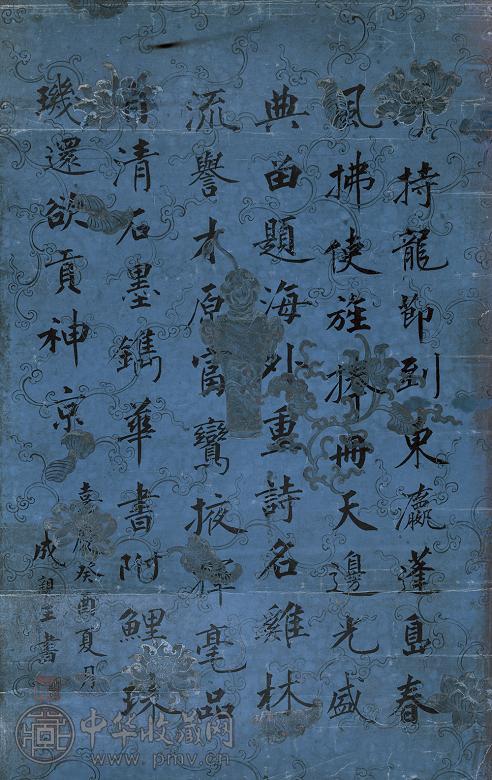 持龍節到東瀛蓬島春
風拂使旌捧冊天邊光盛
典留題海外重詩名雞林
流譽才原富鸞掖揮毫品
清石墨鐫華書附鯉珠
璣還欲貢神京
嘉慶癸酉夏月
成親王書
中华收藏网
www.pmv.cn